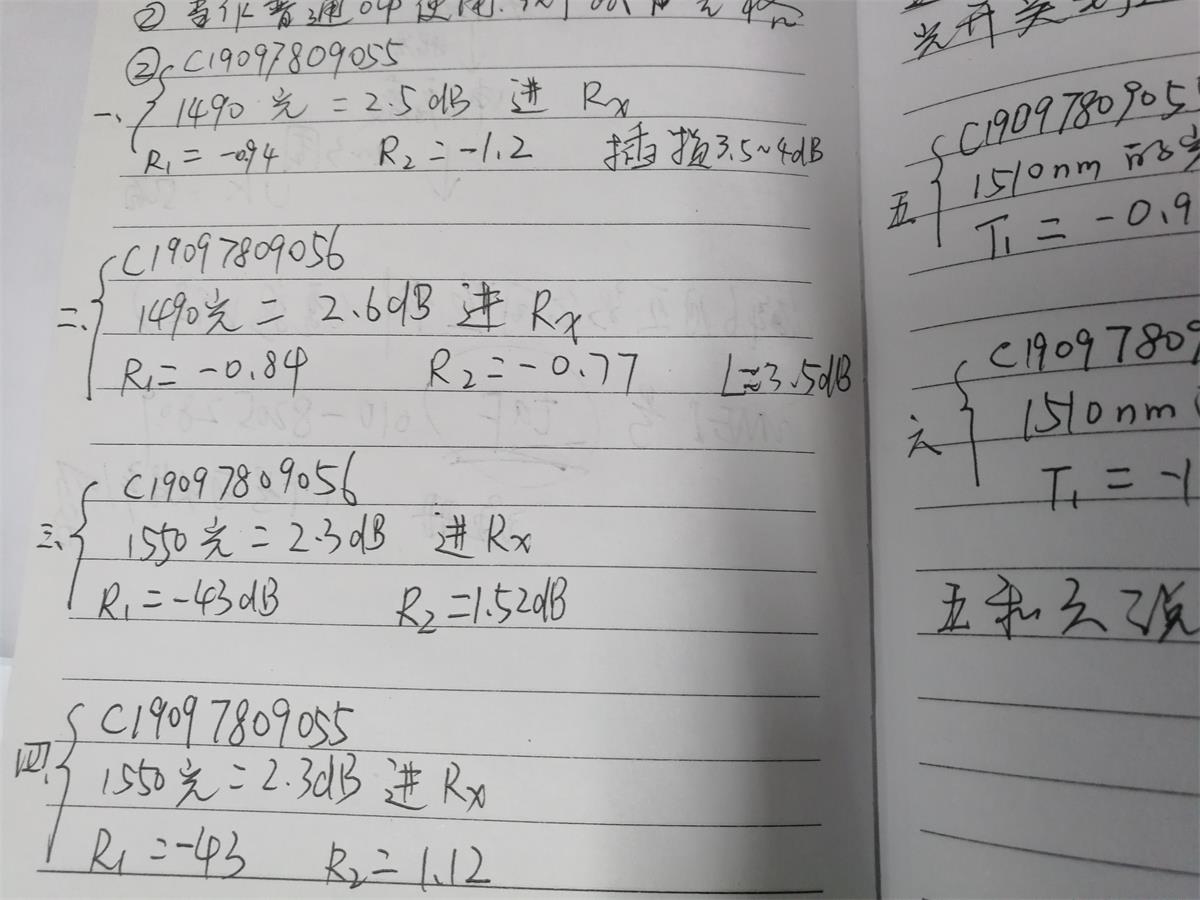 ② C19097809055
一、 1490光 = 2.5dB 进 Rx
R1 = -0.94 R2 = -1.2 插损3.5~4dB
C19097809056
二、 1490光 = 2.6dB 进 Rx
R1 = -0.84 R2 = -0.77 L≈3.5dB
C19097809056
三、 1550光 = 2.3dB 进Rx
R1 = -43dB R2 = 1.52dB
C19097809055
四、 1550光 = 2.3dB 进 Rx
R1 = -43 R2 = 1.12
光开关
C1909780905
五、 1510nm 的光
T1 = -0.9
C19097809
六 1510nm
T1 = -1
五和六